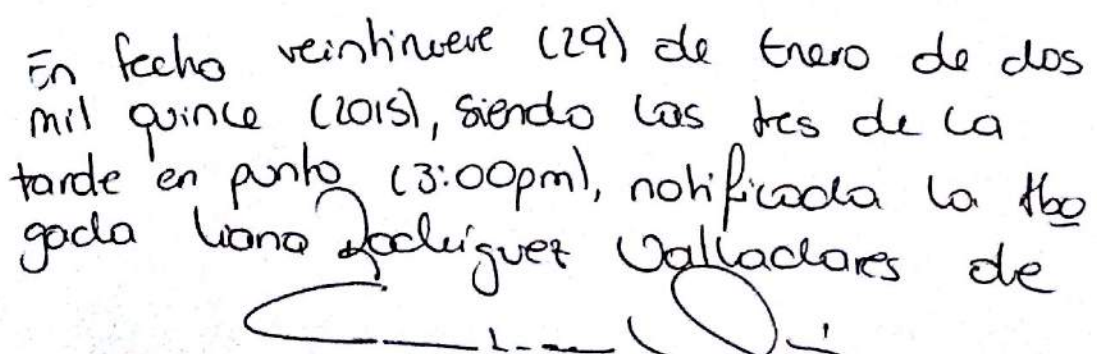 En fecha veintinueve (29) de Enero de dos
mil quince (2015), siendo las tres de la
tarde en punto (3:00pm), notificada la Abo
gada Liana Rodriguez Valladares de